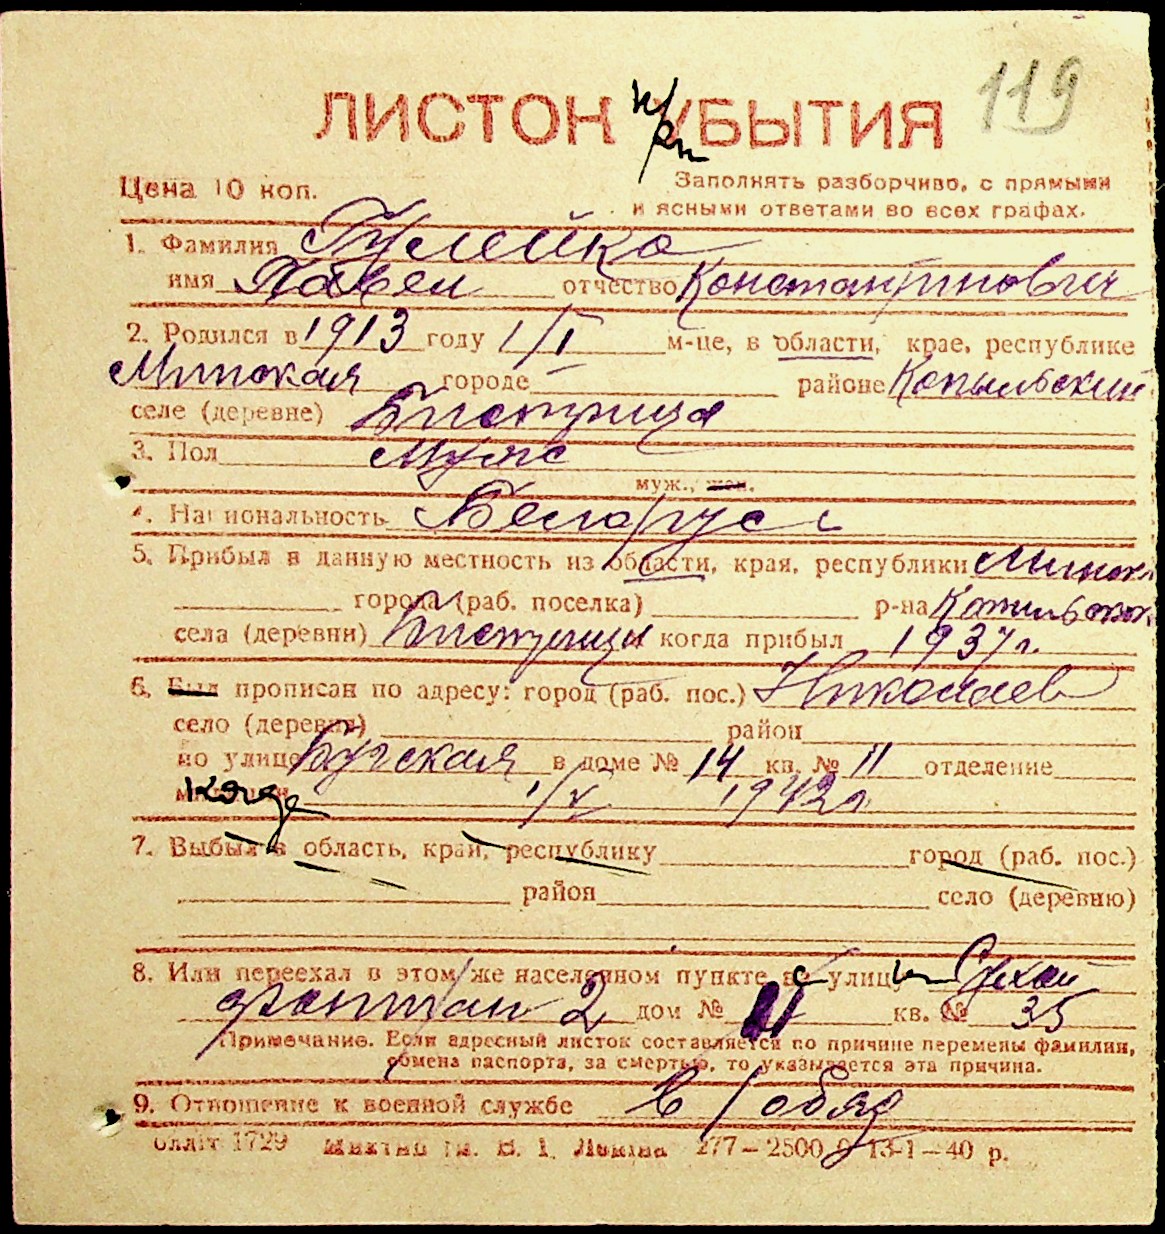 119
ЛИСТОК при УБЫТИЯ
Цена 10 коп.
Заполнять разборчиво, с прямыми
и ясными ответами во всех графах.
1. Фамилия Гулейко
имя Павел отчество Константинович
2. Родился в 1913 году 1/I м-це, в области, крае, республике
Минская городе районе Копыльский
селе (деревне) Быстрица
3. Пол Муж
муж., жен.
4. Национальность Белорус
5. Прибыл в данную местность из области, края, республики Минск
города (раб. поселка) р-на Копыльск
села (деревни) Быстрица когда прибыл 1937 г.
6. Был прописан по адресу: город (раб. пос.) Николаев
село (деревня) район
по улице Бугская в доме № 14 кв. № 11 отделение
милиции когда 1/V 1942 г
7. Выбыл в область, край, республику город (раб. пос.)
район село (деревню)
8. Или переехал в этом же населенном пункте с улицы Сухой
фонтан 2 дом № кв. № 35
Примечание. Если адресный листок составляется по причине перемены фамилии,
обмена паспорта, за смертью, то указывается эта причина.
9. Отношение к военной службе в/обяз
Олліт 1729 277—2500 13-1—40 р.